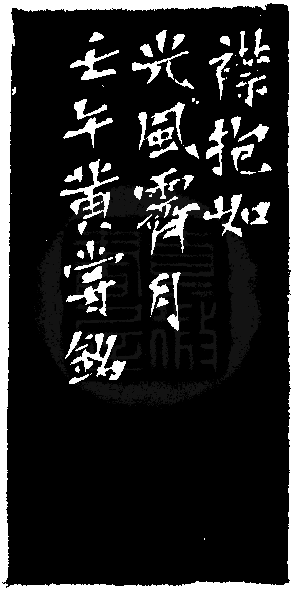 襟抱如
光風霽月
壬午黃嘗銘